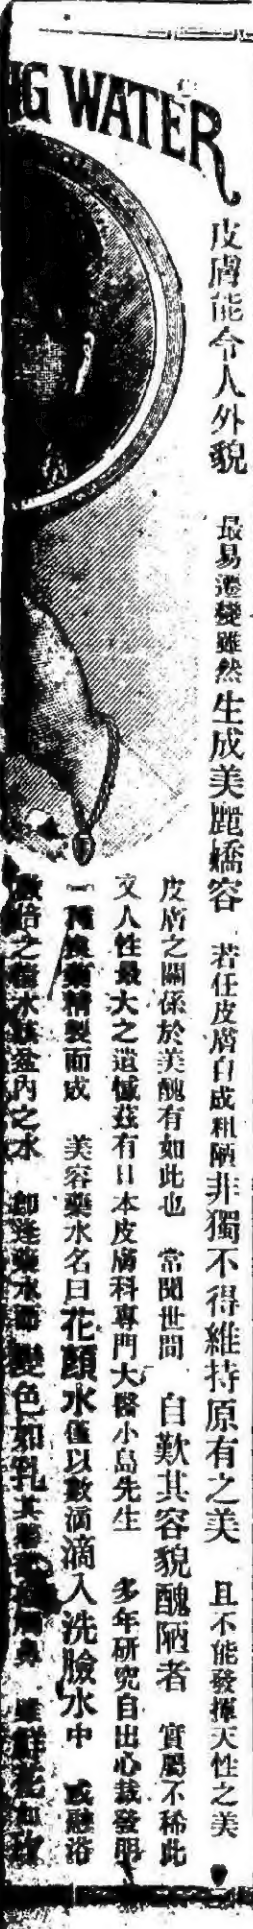 NG WATER
皮膚能令人外貌 最易遷變雖然生成美麗嬌容 若任皮膚自成粗陋非獨不得維持原有之美 且不能發揮天性之美
皮膚之關係於美醜有如此也 常聞世間 自歎其容貌醜陋者 實屬不稀此
文人性最大之遺憾茲有日本皮膚科專門大醫小島先生 多年研究自出心裁發明
一種良藥精製而成 美容藥水名曰花顏水僅以數滴滴入洗臉水中 或融浴
之水 盆內之水 卽逢藥水而變色如乳其